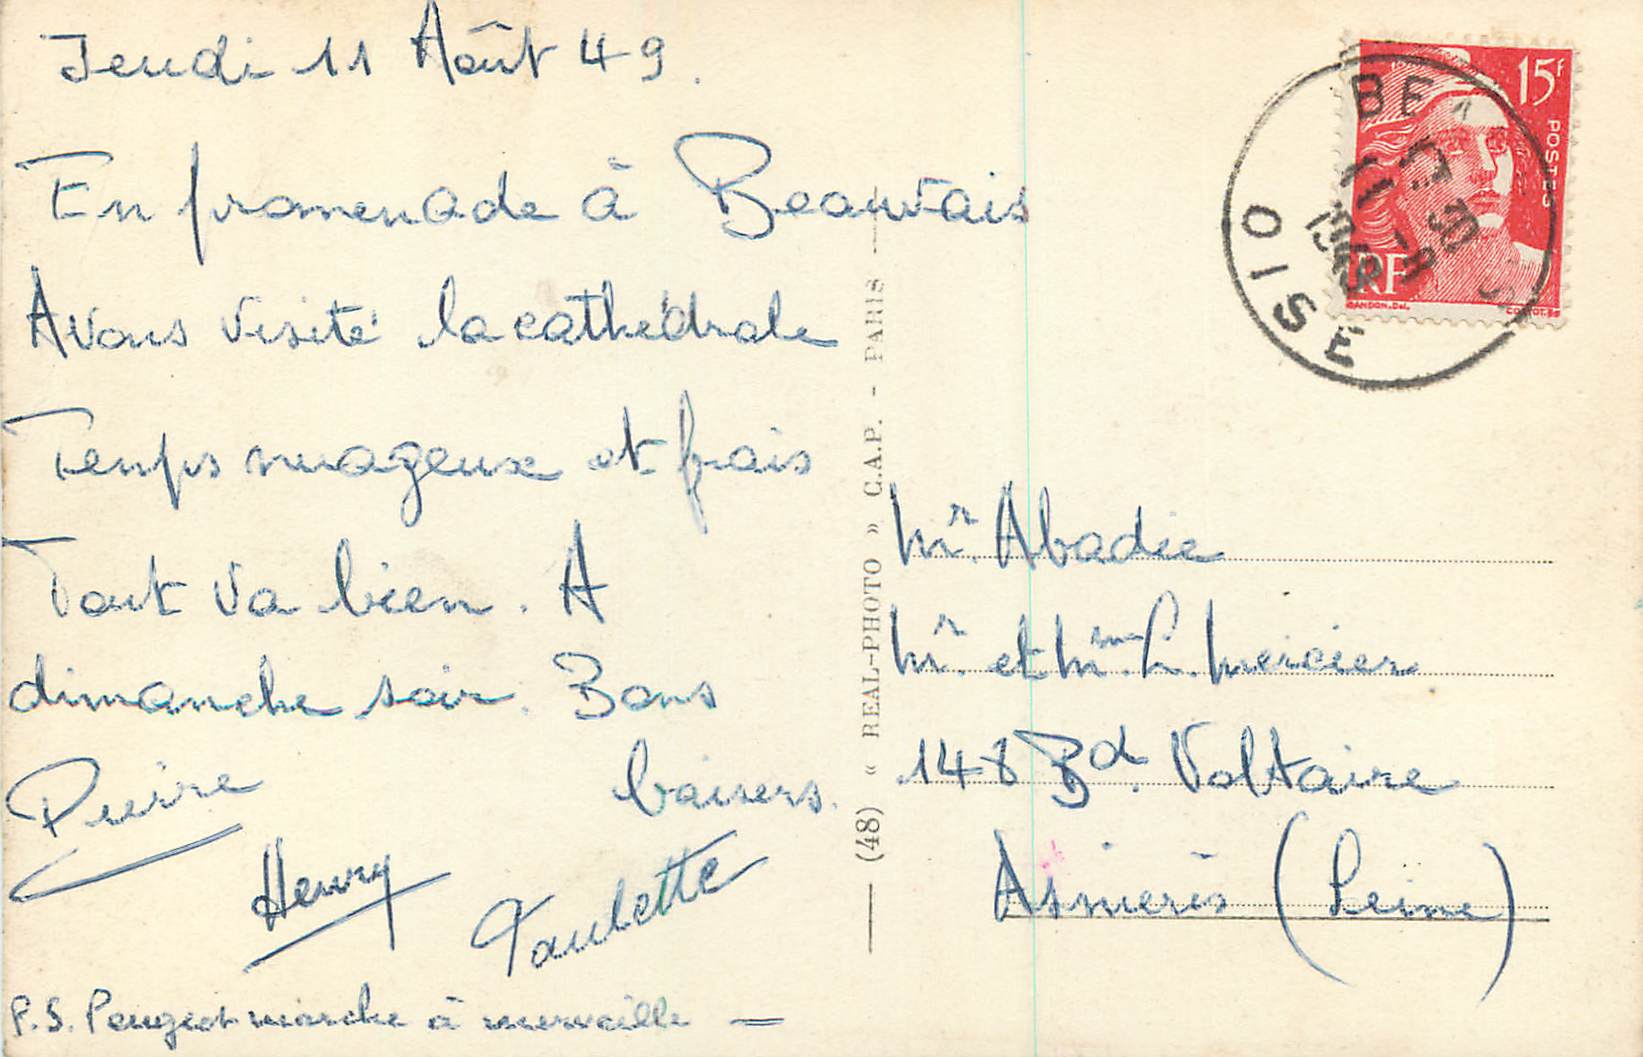 Jeudi 11 Août 49.
En promenade à Beauvais
Avons visité la cathédrale
Temps nuageux et frais
Tout va bien. A
dimanche soir. Bons
baisers.
Pierre
Henry
Paulette
P.S. Peugeot marche à merveille —
(48) « REAL-PHOTO » C.A.P. - PARIS
15F
POSTES
RF
OISE
11 - 8
1949
Mr. Abadie
Mr. et Mme. L. Mercier
148 Bd. Voltaire
Asnieres (Seine)